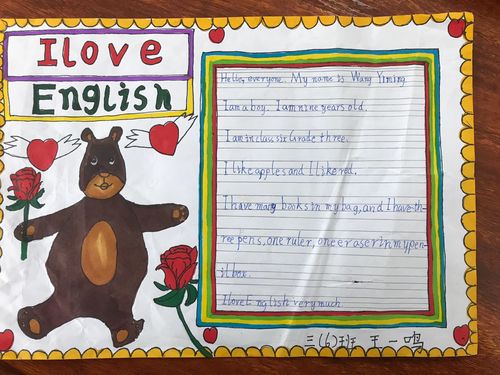 I love
English
Hello, everyone. My name is Wang Yiming.
I am a boy. I am nine years old.
I am in class six Grade three.
I like apples and I like red.
I have many books in my bag, and I have th-
ree pens, one ruler, one eraser in my pen-
il box.
I love English very much
三(6)班 王一鸣